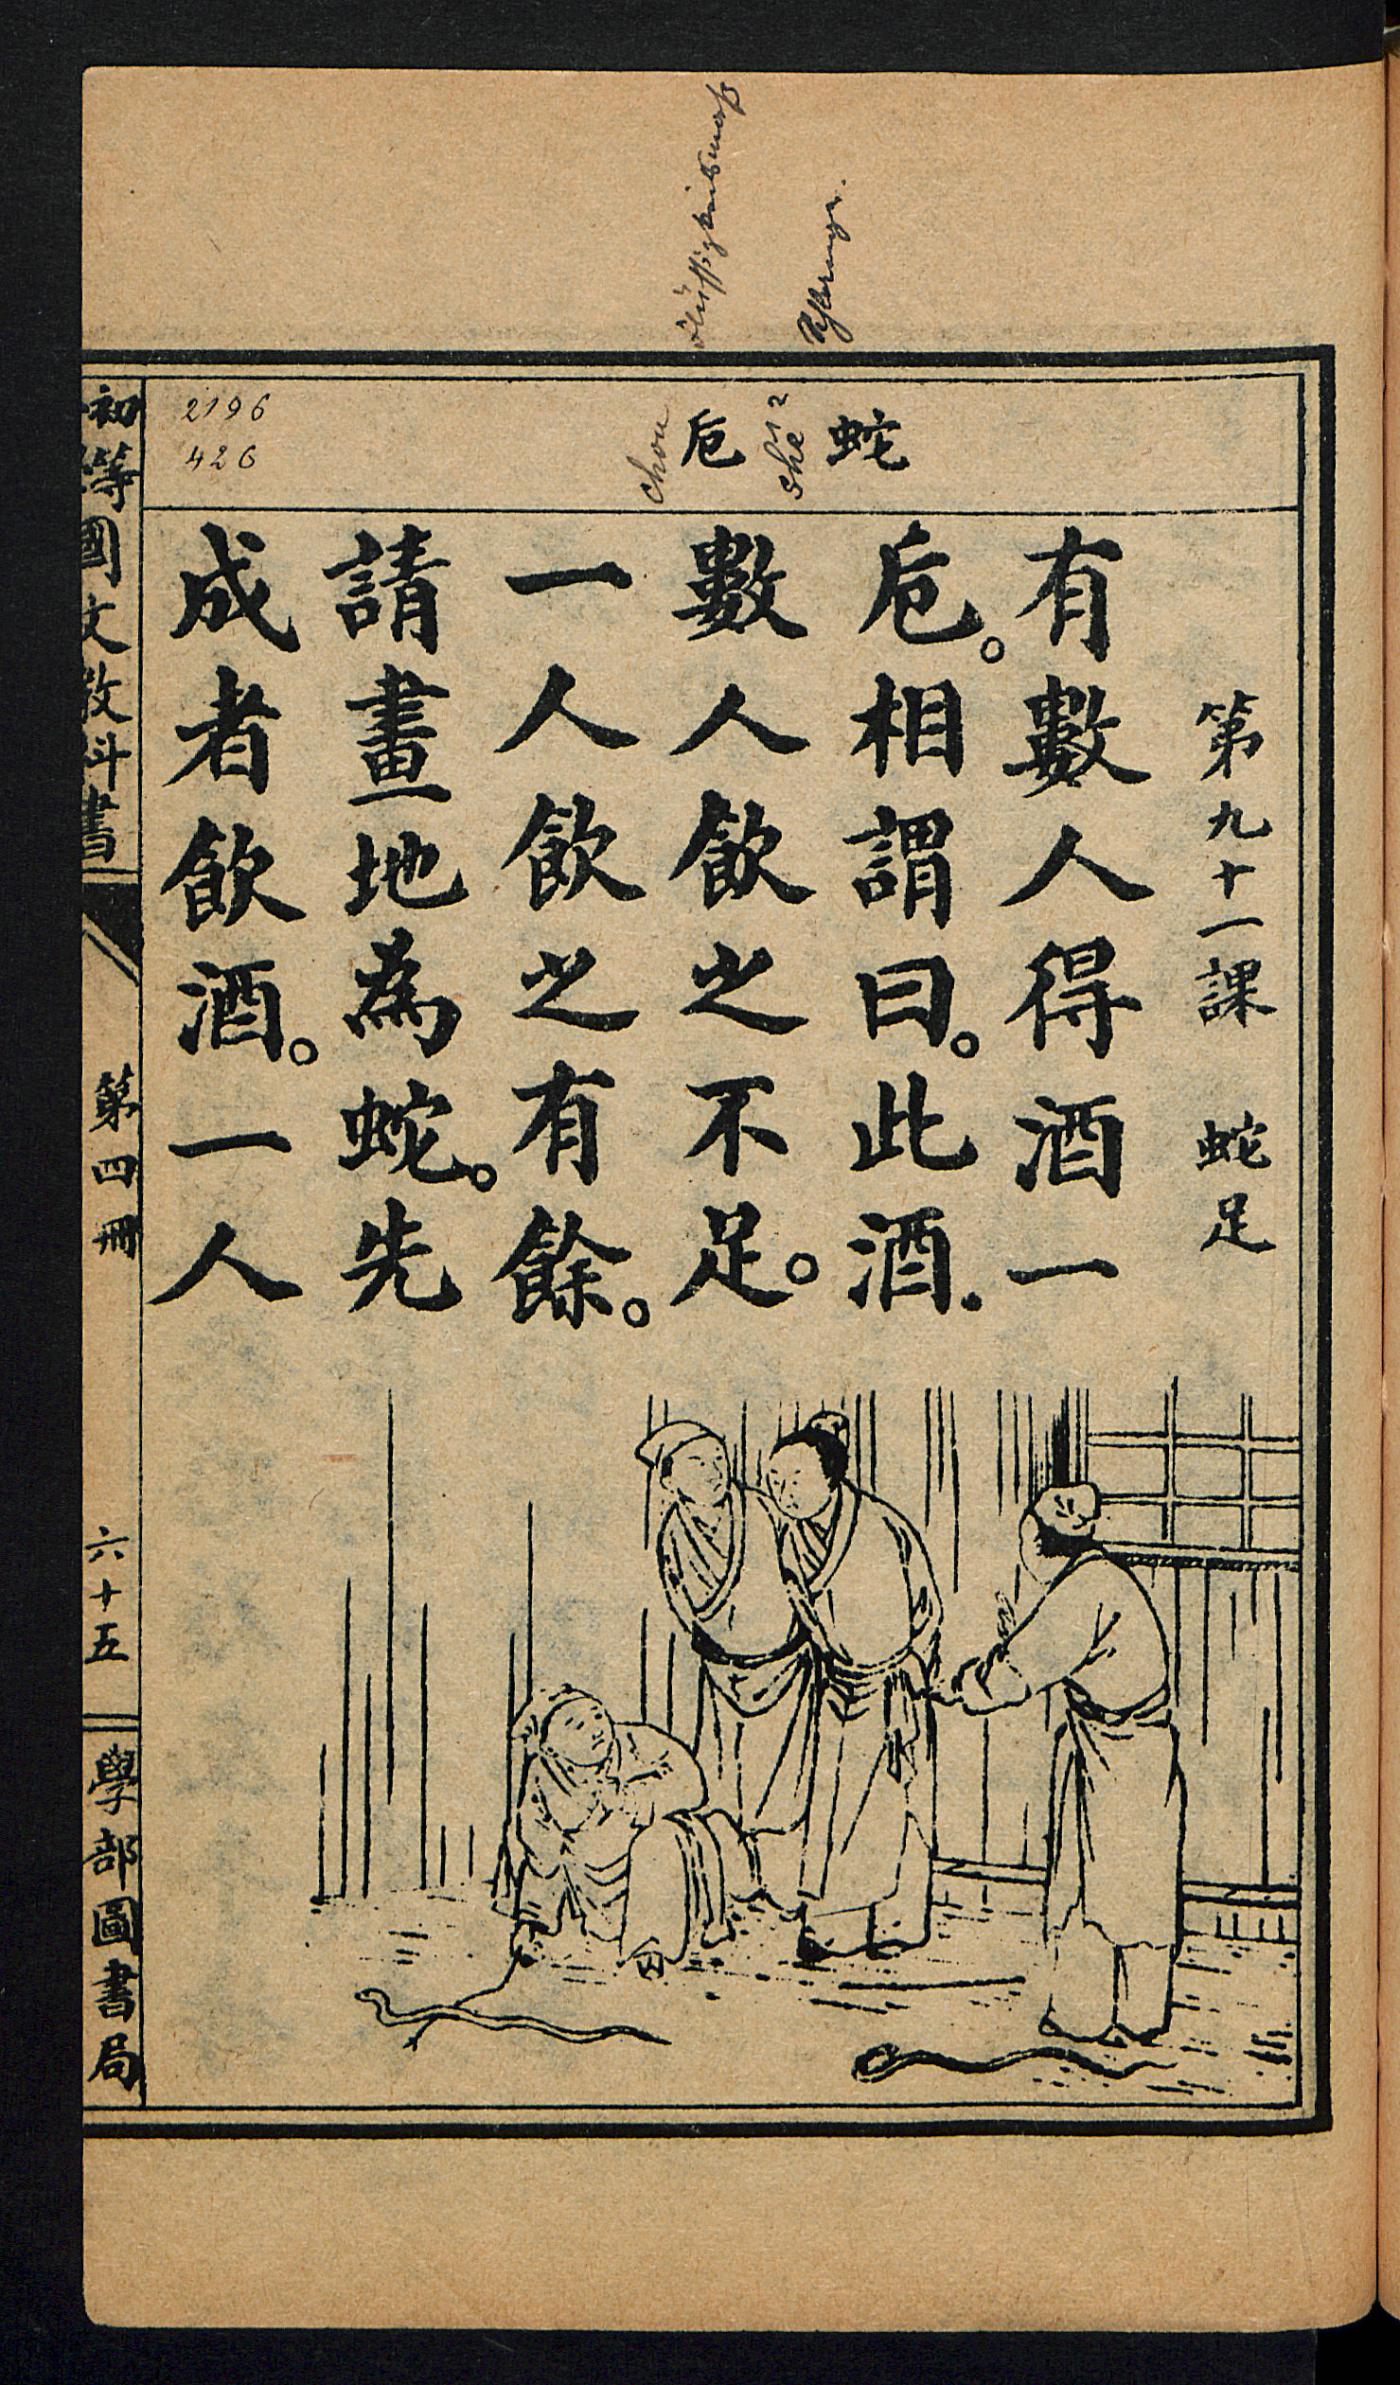 蛇
卮
she²
chou
2196
426
第九十一課　蛇足
有數人得酒一
卮。相謂曰。此酒.
數人飲之不足。
一人飲之有餘。
請畫地為蛇。先
成者飲酒。一人
初等國文教科書
第四冊
六十五
學部圖書局